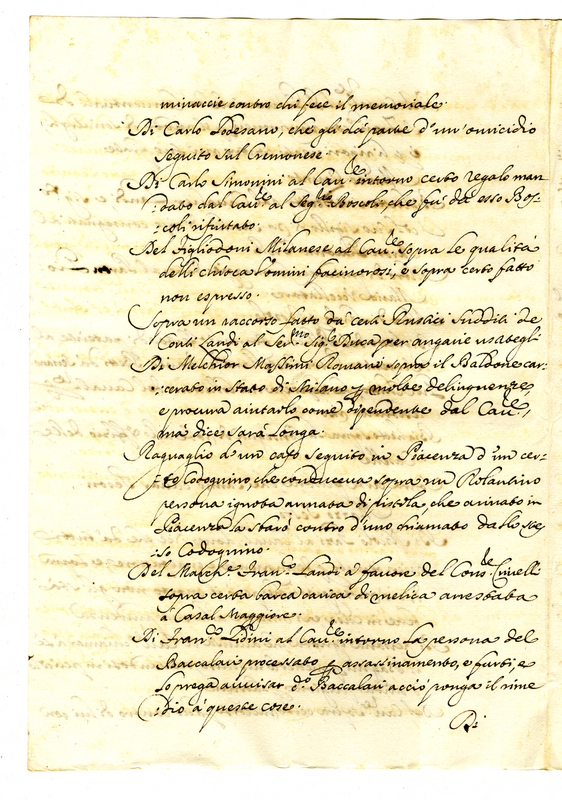 minaccie contro chi fece il memoriale.
Di Carlo Lodesano, che gli dà parte d'un'omicidio
seguito sul Cremonese.
Di Carlo Simonini al Cau.re intorno certo regalo man-
:dato dal Cau.re al Seg.rio Boscoli, che fù da esso Bos-
:coli rifiutato.
Del Figliodoni Milanese al Cau.re sopra le qualità
delli uomini facinorosi, e sopra certo fatto
non espresso.
Sopra un raccorso fatto dà certi Rustici sudditi de
Conti Landi al Ser.mo Sig.r Duca per angarie usategli
Di Melchior Massimi Romano sopra il Baldone car-
:cerato in Stato di Milano p molte delinquenze,
e procura aiutarlo come dipendente dal Cau.re,
mà dice sarà longa.
Raguaglio d'un caso seguito in Piacenza d'un cer-
:to Codognino, che conduceua sopra un Rolantino
persona ignota armata di pistola, che arriuato in
Piacenza la sparò contro d'uno chiamato dallo ste-
:so Codognino.
Del March.e Fran.co Landi à fauore del Cons.re Criuelli
sopra certa barca carica di melica arrestata
à Casal Maggiore.
Di Fran.co Lidini al Cau.re intorno la persona del
Baccalari processato p assassinamento, e furti, e
lo prega auuisar d.o Baccalari acciò ponga il rime
:dio à queste cose.
Di